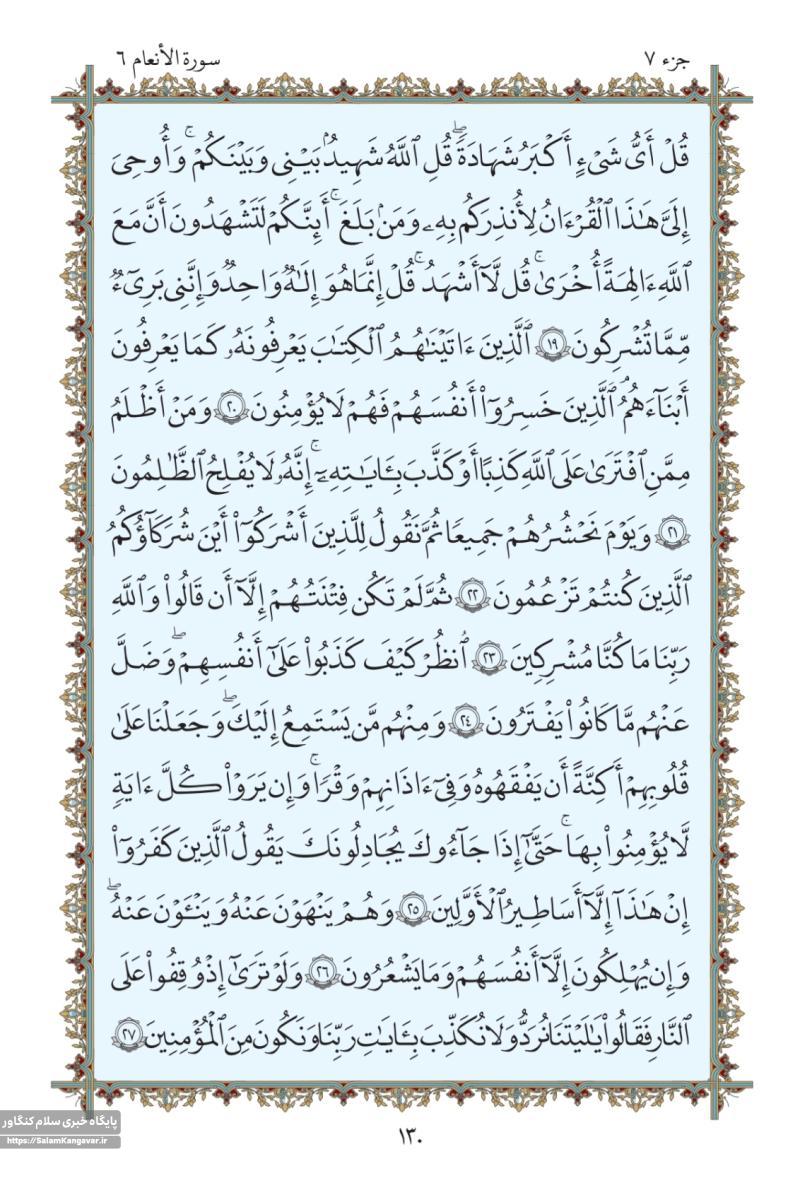 جزء ٧
سورة الأنعام ٦
قُلْ أَىُّ شَىْءٍ أَكْبَرُ شَهَـٰدَةً ۖ قُلِ ٱللَّهُ شَهِيدٌۢ بَيْنِى وَبَيْنَكُمْ ۚ وَأُوحِىَ
إِلَىَّ هَـٰذَا ٱلْقُرْءَانُ لِأُنذِرَكُم بِهِۦ وَمَنۢ بَلَغَ ۚ أَئِنَّكُمْ لَتَشْهَدُونَ أَنَّ مَعَ
ٱللَّهِ ءَالِهَةً أُخْرَىٰ ۚ قُل لَّآ أَشْهَدُ ۚ قُلْ إِنَّمَا هُوَ إِلَـٰهٌ وَٰحِدٌ وَإِنَّنِى بَرِىٓءٌ
مِّمَّا تُشْرِكُونَ ١٩ ٱلَّذِينَ ءَاتَيْنَـٰهُمُ ٱلْكِتَـٰبَ يَعْرِفُونَهُۥ كَمَا يَعْرِفُونَ
أَبْنَآءَهُمُ ۘ ٱلَّذِينَ خَسِرُوٓا۟ أَنفُسَهُمْ فَهُمْ لَا يُؤْمِنُونَ ٢٠ وَمَنْ أَظْلَمُ
مِمَّنِ ٱفْتَرَىٰ عَلَى ٱللَّهِ كَذِبًا أَوْ كَذَّبَ بِـَٔايَـٰتِهِۦٓ ۗ إِنَّهُۥ لَا يُفْلِحُ ٱلظَّـٰلِمُونَ
٢١ وَيَوْمَ نَحْشُرُهُمْ جَمِيعًا ثُمَّ نَقُولُ لِلَّذِينَ أَشْرَكُوٓا۟ أَيْنَ شُرَكَآؤُكُمُ
ٱلَّذِينَ كُنتُمْ تَزْعُمُونَ ٢٢ ثُمَّ لَمْ تَكُن فِتْنَتُهُمْ إِلَّآ أَن قَالُوا۟ وَٱللَّهِ
رَبِّنَا مَا كُنَّا مُشْرِكِينَ ٢٣ ٱنظُرْ كَيْفَ كَذَبُوا۟ عَلَىٰٓ أَنفُسِهِمْ ۖ وَضَلَّ
عَنْهُم مَّا كَانُوا۟ يَفْتَرُونَ ٢٤ وَمِنْهُم مَّن يَسْتَمِعُ إِلَيْكَ ۖ وَجَعَلْنَا عَلَىٰ
قُلُوبِهِمْ أَكِنَّةً أَن يَفْقَهُوهُ وَفِىٓ ءَاذَانِهِمْ وَقْرًا ۚ وَإِن يَرَوْا۟ كُلَّ ءَايَةٍ
لَّا يُؤْمِنُوا۟ بِهَا ۚ حَتَّىٰٓ إِذَا جَآءُوكَ يُجَـٰدِلُونَكَ يَقُولُ ٱلَّذِينَ كَفَرُوٓا۟
إِنْ هَـٰذَآ إِلَّآ أَسَـٰطِيرُ ٱلْأَوَّلِينَ ٢٥ وَهُمْ يَنْهَوْنَ عَنْهُ وَيَنْـَٔوْنَ عَنْهُ ۖ
وَإِن يُهْلِكُونَ إِلَّآ أَنفُسَهُمْ وَمَا يَشْعُرُونَ ٢٦ وَلَوْ تَرَىٰٓ إِذْ وُقِفُوا۟ عَلَى
ٱلنَّارِ فَقَالُوا۟ يَـٰلَيْتَنَا نُرَدُّ وَلَا نُكَذِّبَ بِـَٔايَـٰتِ رَبِّنَا وَنَكُونَ مِنَ ٱلْمُؤْمِنِينَ ٢٧
١٣٠
پایگاه خبری سلام کنگاور
https://SalamKangavar.ir